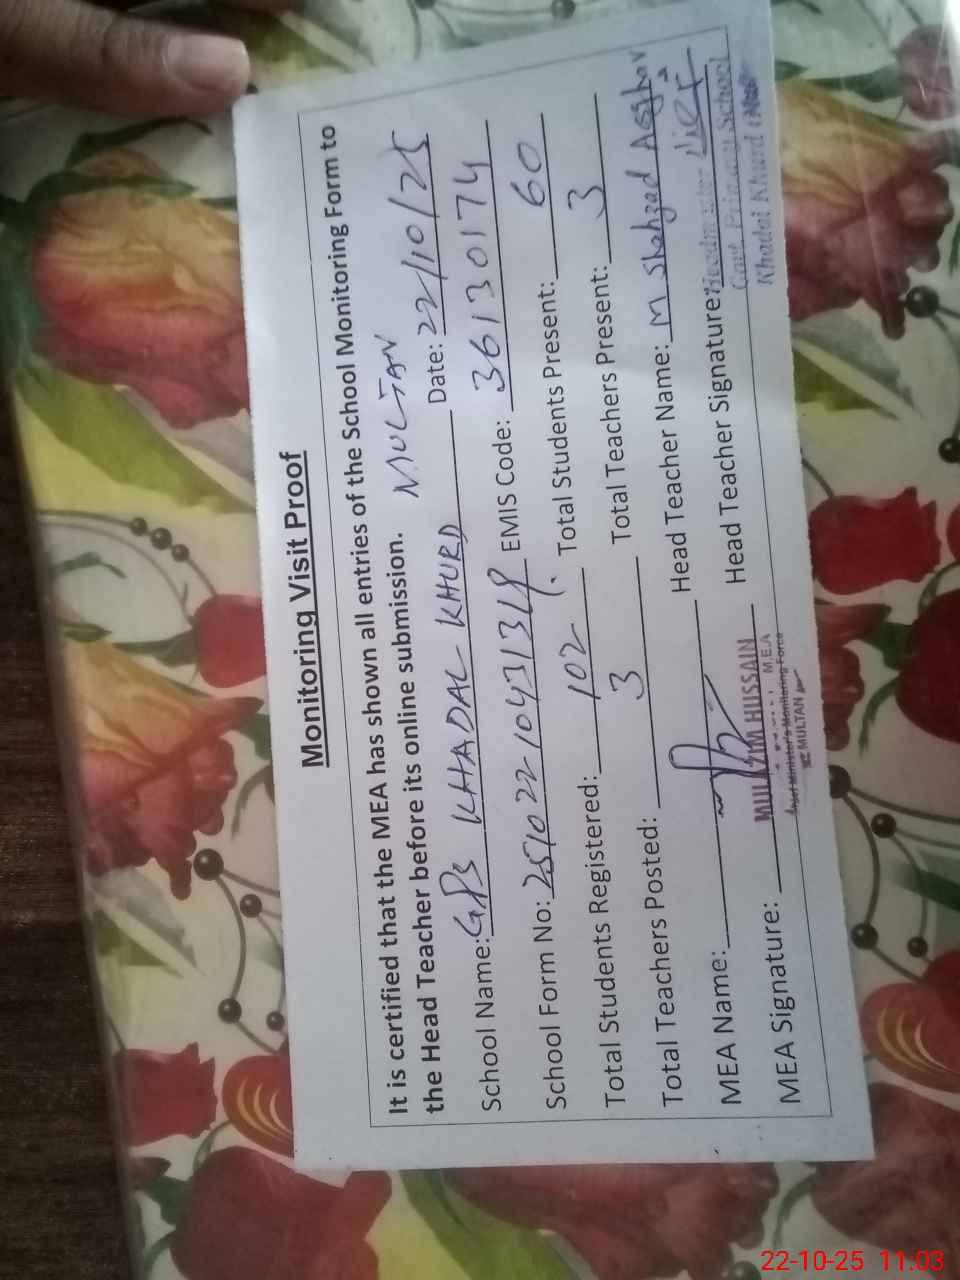 Monitoring Visit Proof
It is certified that the MEA has shown all entries of the School Monitoring Form to
the Head Teacher before its online submission. MULTAN
School Name: GPS KHADAL KHURD Date: 22/10/25
School Form No: EMIS Code: 36130174
Total Students Registered: 102 Total Students Present: 60
Total Teachers Posted: 3 Total Teachers Present: 3
MEA Name: Head Teacher Name: M Shahzad Asghar
MEA Signature: HUSSAIN Head Teacher Signature: Headmaster
M.E.A Govt. Primary School
Chief Minister's Monitoring Force Khadal Khurd
MULTAN
22-10-25 11:03